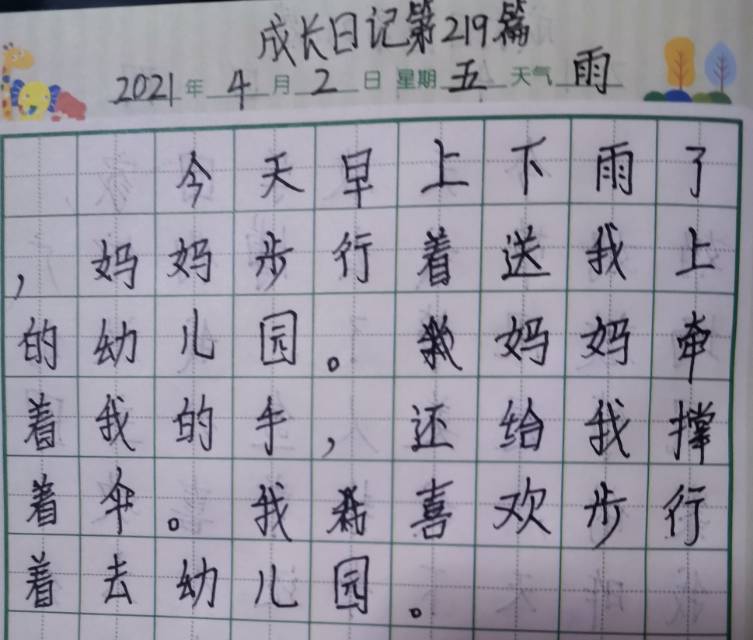 成长日记第219篇
2021年4月2日 星期五 天气雨
今天早上下雨了
，妈妈步行着送我上
的幼儿园。妈妈牵
着我的手，还给我撑
着伞。我喜欢步行
着去幼儿园。